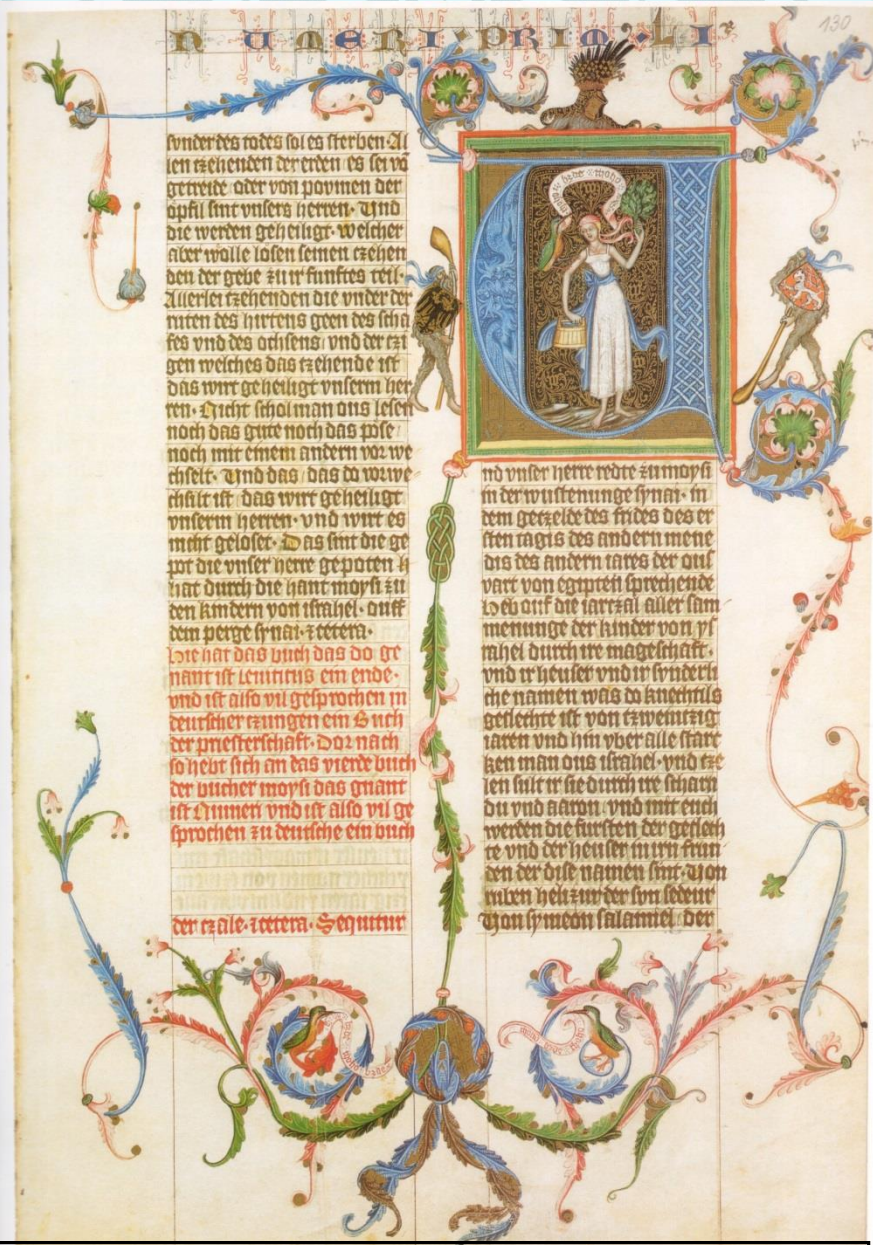 NUMERI·PRIM·LI
130
sunder des todes sol es sterben· Al
len czehenden der erden es sei võ
getreide oder von powmen der
opfil sint vnsers herren· Vnd
die werden geheiligt· welcher
aber wolle losen seinen czehen
den der gebe zu ir funftes teil·
Allerlei czehenden die vnder der
ruten des hirtens geen des scha
fes vnd des ochsens vnd der czi
gen welches das czehende ist
das wirt geheiligt vnserm her
ren· Nicht schol man ous lesen
noch das gute noch das pose
noch mit einem andern vor we
chselt· Vnd das das do vorwe
chsilt ist das wirt geheiligt
vnserm herren· vnd wirt es
nicht geloset· Das sint die ge
pot die vnser herre gepoten
hat durch die hant moysi zu
den kindern von israhel· ouff
dem perge synai· ꝛ cetera·
Hie hat das buch das do ge
nant ist Leuiticus ein ende·
vnd ist also vil gesprochen in
deutscher czungen ein Buch
der priesterschaft· Dor nach
so hebt sich an das vierde buch
der bucher moysi das gnant
ist Numeri vnd ist also vil ge
sprochen zu deutsche ein buch
der czale· ꝛ cetera· Sequitur
nd vnser herre redte zu moysi
in der wustenunge synai· in
dem geczelde des frides des er
sten tagis des andern mene
dis des andern iares der ous
vart von egipten sprechende
Heb ouf die iarczal aller sam
menunge der kinder von ys
rahel durch ire mageschaft·
vnd ir heuser vnd ir synderli
che namen was do knechtils
geslechte ist von czweinczig
iaren vnd hin vber alle starc
ken man ous israhel· vnd cze
len sult ir sie durch ire scharn
du vnd aaron· vnd mit euch
werden die fursten der geslech
te vnd der heuser in irn frun
den der dise namen sint· Von
ruben helizur der syn sedeur
Von symeon salamiel der